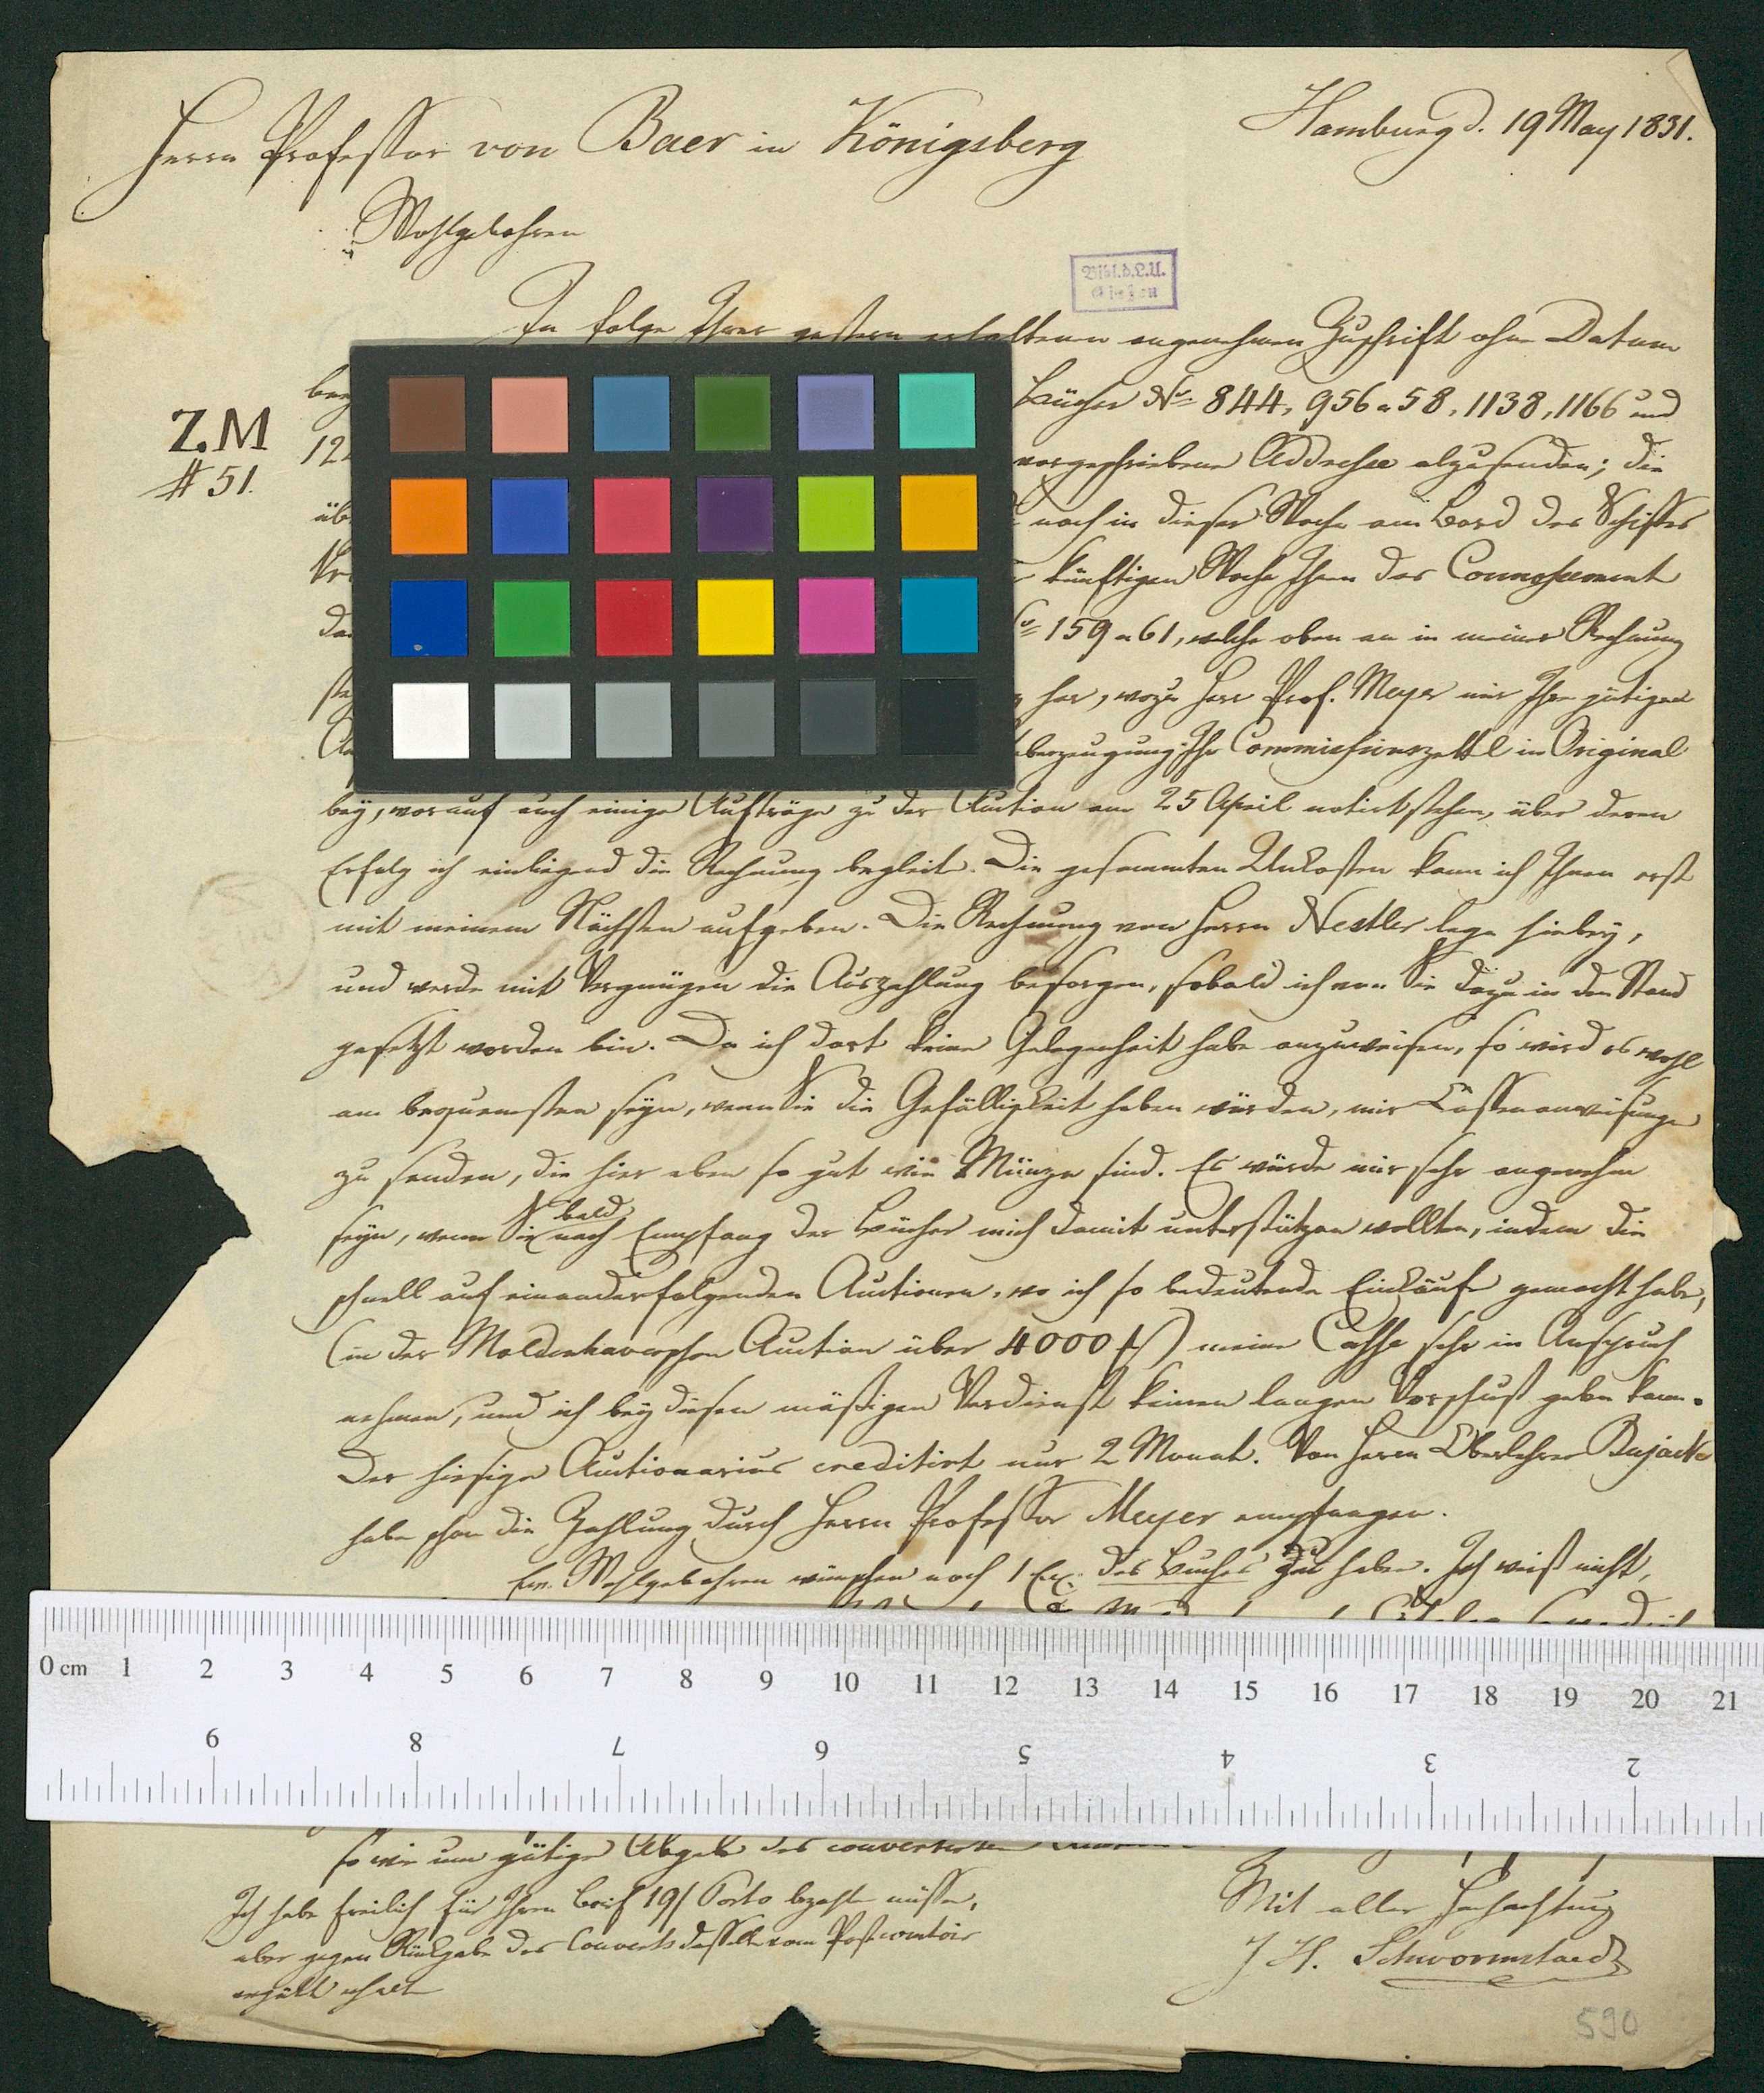 Hamburg d. 19 May 1831.
Herrn Professor von Baer in Königsberg
Wohlgebohren
Bibl. d. L. U.
Gießen
In folge Ihrer gestern erhaltenen angenehmen Zuschrift ohne Datum
Bücher No 844, 956 a 58, 1138, 1166 und
Z. M
# 51.
12
vorgeschriebene Addresse abzusenden; die
üb
noch in dieser Woche am Bord des Schiffes
künftigen Woche Ihnen das Connossement
da
159 a 61, welche oben an in meiner Rechnung
her, wozu Herr Prof. Meyer mir Ihre gütigen
Ueberzeugung Ihr Commissionszettel in Original
bey, worauf auch einige Aufträge zu der Auction am 25 April notirt stehen, über deren
Erfolg ich einliegend die Rechnung begleite. Die gesammten Unkosten kann ich Ihnen erst
mit meinem Nächsten aufgeben. Die Rechnung von Herrn Nestler lege hiebey,
und werde mit Vergnügen die Auszahlung besorgen, sobald ich von Sie dazu in den Stand
gesetzt worden bin. Da ich dort keine Gelegenheit habe anzuweisen, so wird es wohl
am bequemsten seyn, wenn Sie die Gefälligkeit haben würden, mir Cassenanweisungen
zu senden, die hier eben so gut wie Münze sind. Es würde mir sehr angenehm
seyn, wenn Sie bald nach Empfang der Bücher mich damit unterstützen wollten, indem die
schnell auf einanderfolgenden Auctionen, wo ich so bedeutende Einkäufe gemacht habe,
(in der Moldenhawerschen Auction über 4000 ) meine Casse sehr in Anspruch
nehmen, und ich bey diesen mäßigen Verdienst keinen langen Vorschuß geben kann.
Der hiesige Auctionarius creditirt nur 2 Monat. Von Herrn Oberlehrer Bujack
habe schon die Zahlung durch Herrn Professor Meyer empfangen.
Ew. Wohlgebohren wünschen noch 1 Ex. des Buches zu haben. Ich weiß nicht,
0 cm 1 2 3 4 5 6 7 8 9 10 11 12 13 14 15 16 17 18 19 20 21
9 8 7 6 5 4 3 2
so wie um gütige Abgabe des couvertirten
Ich habe freilich für Ihren Brief 19 ß Porto bezahlen müssen,
aber gegen Rückgabe des Couverts dasselbe vom Postcomtoir
Mit aller Hochachtung
J. H. Schwormstaedt
590